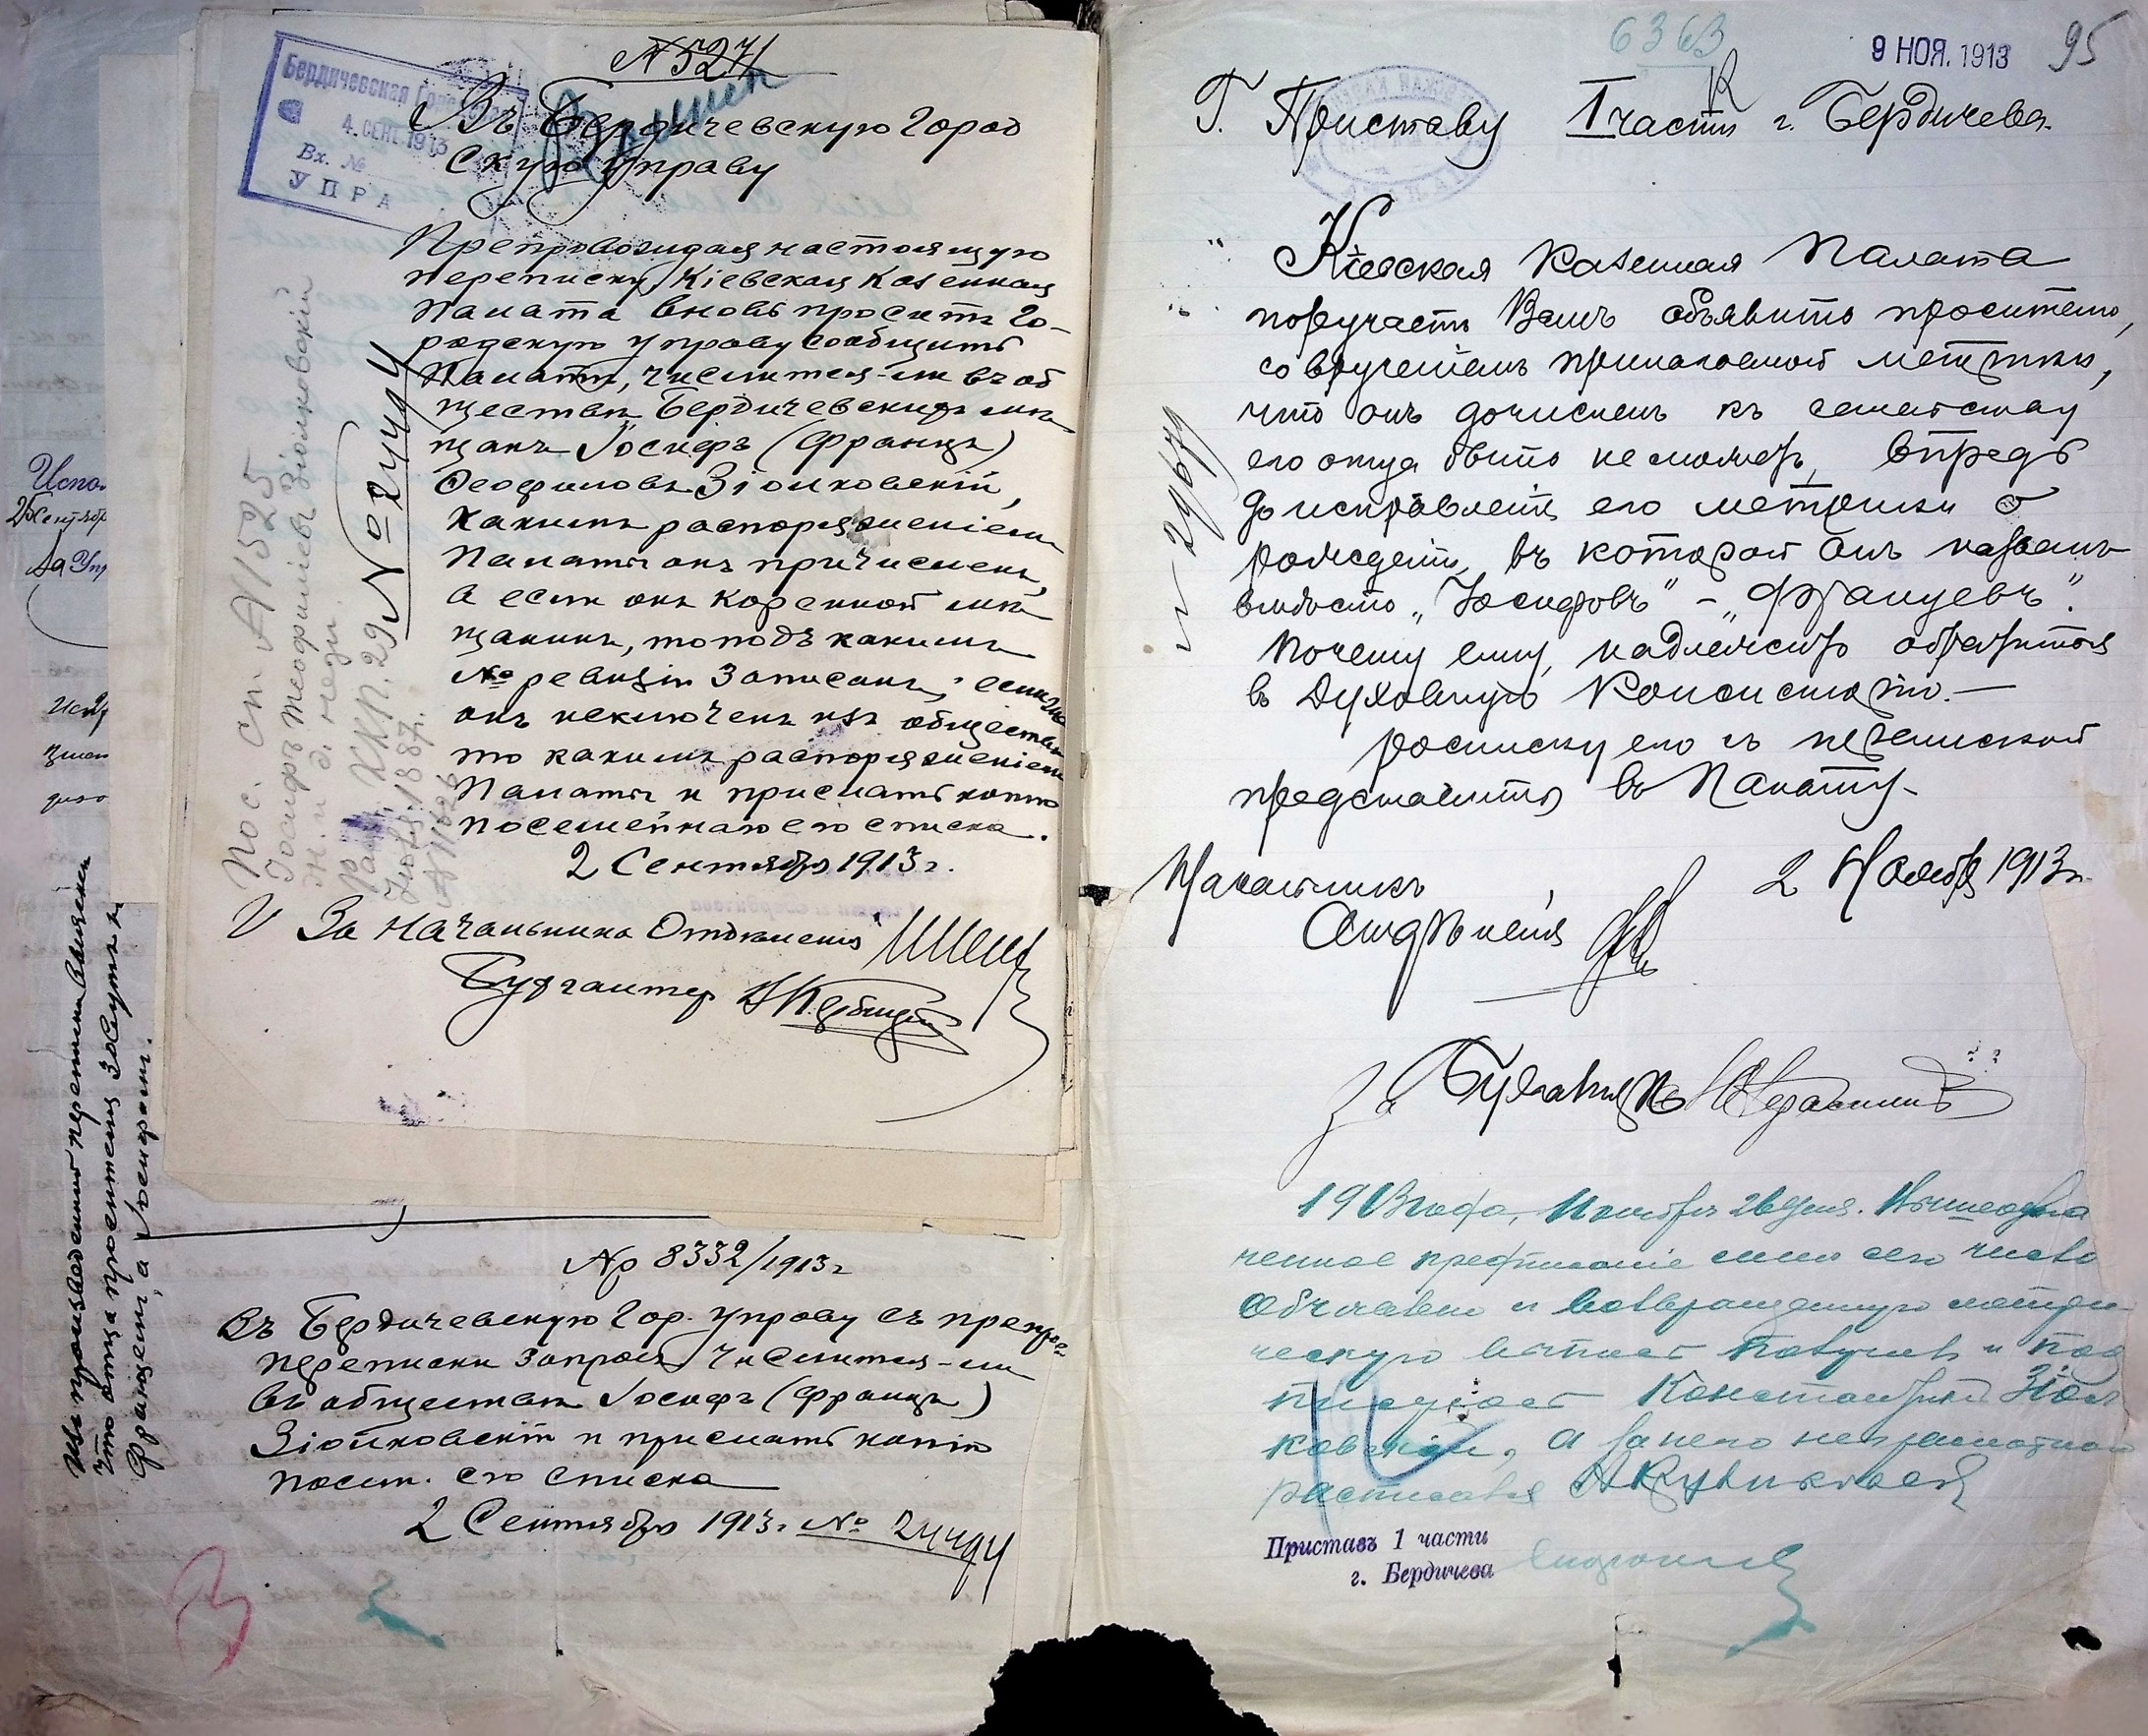 № 5271
Бердичевская Гор
4. СЕНТ. 1913
Вх. №
УПРА
Въ Бердичевскую Город
скую Управу
Препровождая настоящую
переписку, Кіевская Казенная
Палата вновь просить Го-
родскую управу сообщить
Палатѣ, числится-ли въ об
ществѣ Бердичевскихъ мѣ
щанъ Іосифъ (Францъ)
Ѳеофиловъ Зіолковскій,
какимъ распоряженіемъ
Палаты онъ причисленъ,
а если онъ коренной мѣ
щанинъ, то подъ какимъ
№ ревизіи записанъ; если же
онъ исключенъ изъ общества
то какимъ распоряженіемъ
Палаты и прислать копію
посемейнаго его списка.
2 Сентября 1913 г.
За Начальника Отдѣленія
Бухгалтеръ
№ 24494
Пос. сп. № 1525
Іосифъ Теофиліевъ Зіолковскій
Р. 29
1887 г.
Испо
2 Сентяб
За Упр
Изъ произведенной переписки
что отца просителя зовутъ не
Францемъ, а Іосифомъ.
№ 8332/1913 г
Въ Бердичевскую Гор. Управу съ препров
переписки запрося, числится-ли
въ обществѣ Іосифъ (Францъ)
Зіолковскій и прислать копію
посем. его списка
2 Сентября 1913 г. № 24494
6363
9 НОЯ. 1913
95
Г. Приставу 1 части г. Бердичева.
Кіевская Казенная Палата
поручаетъ Вамъ объявить просителю,
со врученіемъ прилагаемой метрики,
что онъ дочисленъ къ семейству
его отца быть не можетъ, впредь
до исправленія его метрики о
рожденіи, въ которой онъ названъ
вмѣсто „Іосифовъ" – „Францевъ".
Почему ему надлежитъ обратиться
въ Духовную Консисторію. —
Росписку его съ перепиской
представить въ Палату.
№ 29679
Начальникъ
Отдѣленія
2 Ноября 1913 г.
За Бухгалтера
1913 года, Ноября 26 дня. Вышеозна
ченное предписаніе мнѣ сего числа
объявлено и возвращенную метри
ческую выпись получилъ и под
писуюсь Константинъ Зіол
ковскій, а за него неграмотнаго
росписался
Приставъ 1 части
г. Бердичева